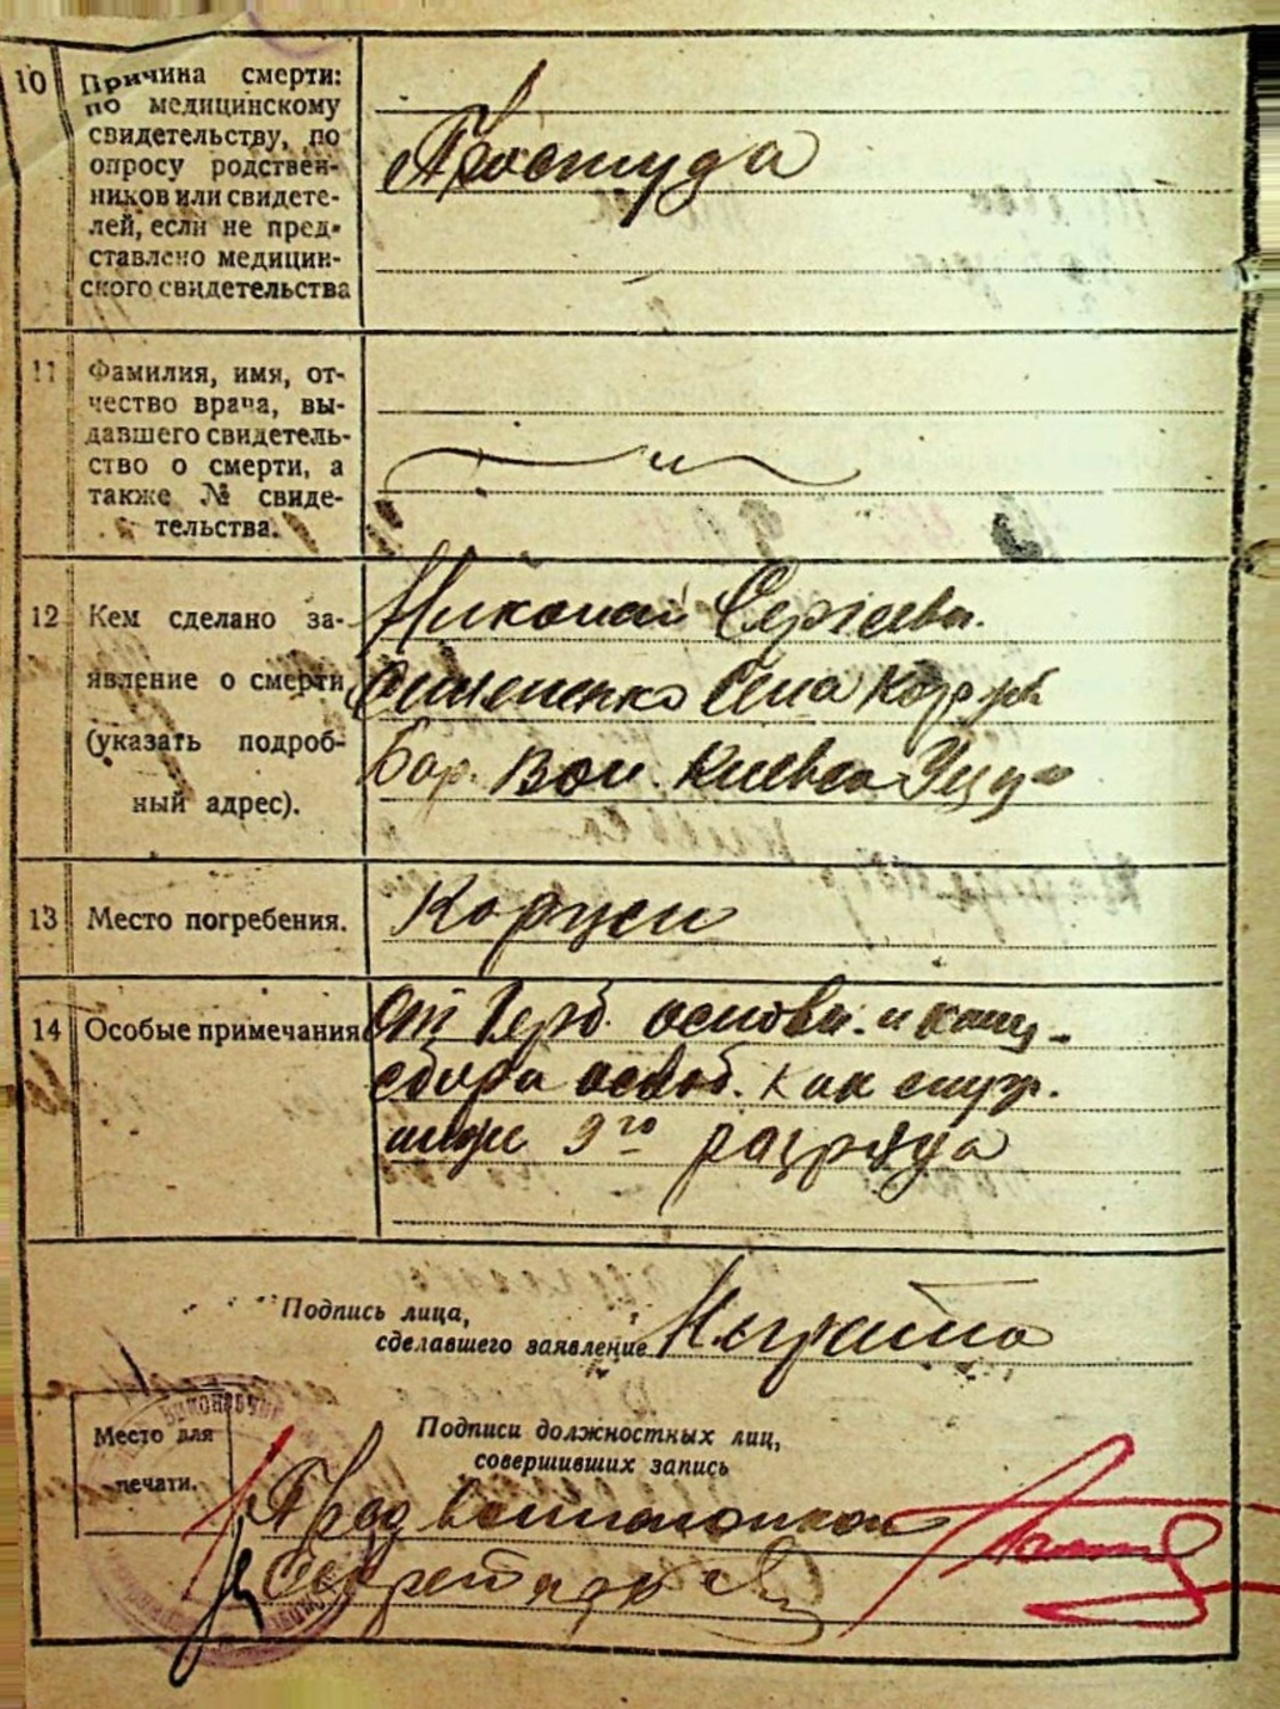 10 Причина смерти:
по медицинскому
свидетельству, по
опросу родствен-
ников или свидете-
лей, если не пред-
ставлено медицин-
ского свидетельства
Простуда
11 Фамилия, имя, от-
чество врача, вы-
давшего свидетель-
ство о смерти, а
также № свиде-
тельства.
12 Кем сделано за-
явление о смерти
(указать подроб-
ный адрес).
Николай Сергеев.
села
Бар. вол. Киевск
13 Место погребения.
14 Особые примечания
От Герб. основн. и канц-
сбора освоб. как служ.
9го разряда
Подпись лица,
сделавшего заявление
Место для
печати.
Подписи должностных лиц,
совершивших запись
Пред
Секретарь